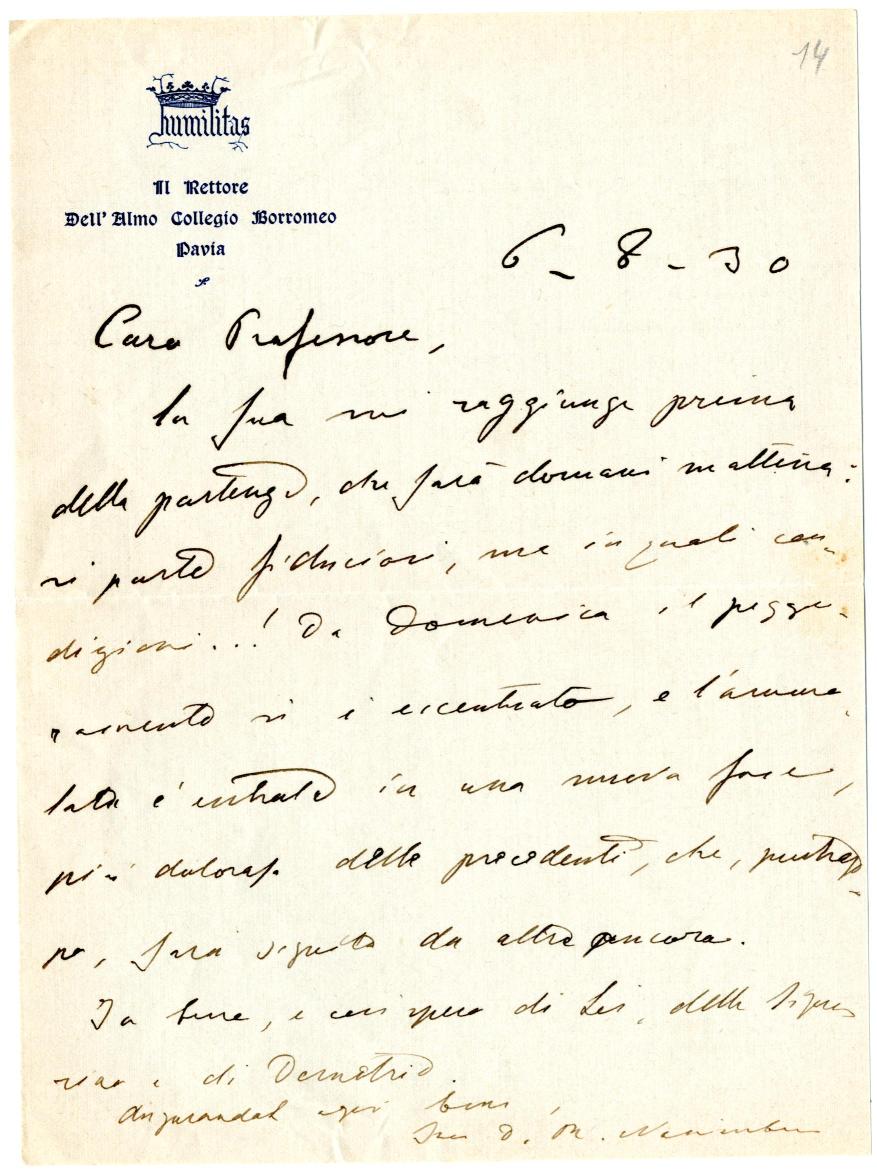 14
humilitas
Il Rettore
Dell'Almo Collegio Borromeo
Pavia
6 - 8 - 30
Caro Professore,
la sua mi raggiunge prima
della partenza, che sarà domani mattina:
si parte fiduciosi, ma in quali con-
dizioni...! Da Domenica il peggio-
ramento si è accentuato, e l'amma-
lata è entrata in una nuova fase,
più dolorosa delle precedenti, che, purtrop-
po, sarà seguita da altre ancora.
Io bene, e così spero di Lei, della Signo-
rina e di Demetrio.
Augurandole ogni bene,
Suo D.